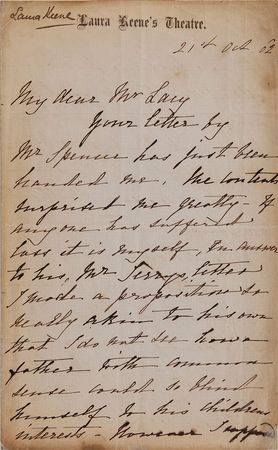 Laura Keene
Laura Keene's Theatre.
21st Oct 62
My dear Mr Lacy
Your letter by
Mr Spencer has just been
handed me, the contents
surprised me greatly - If
anyone has suffered
loss it is myself, In answer
to his, Mr Jerrys, letter
I made a proposition so
really akin to his own
that I do not see how a
father with common
sense could so blind
himself to his childrens
interests - However I